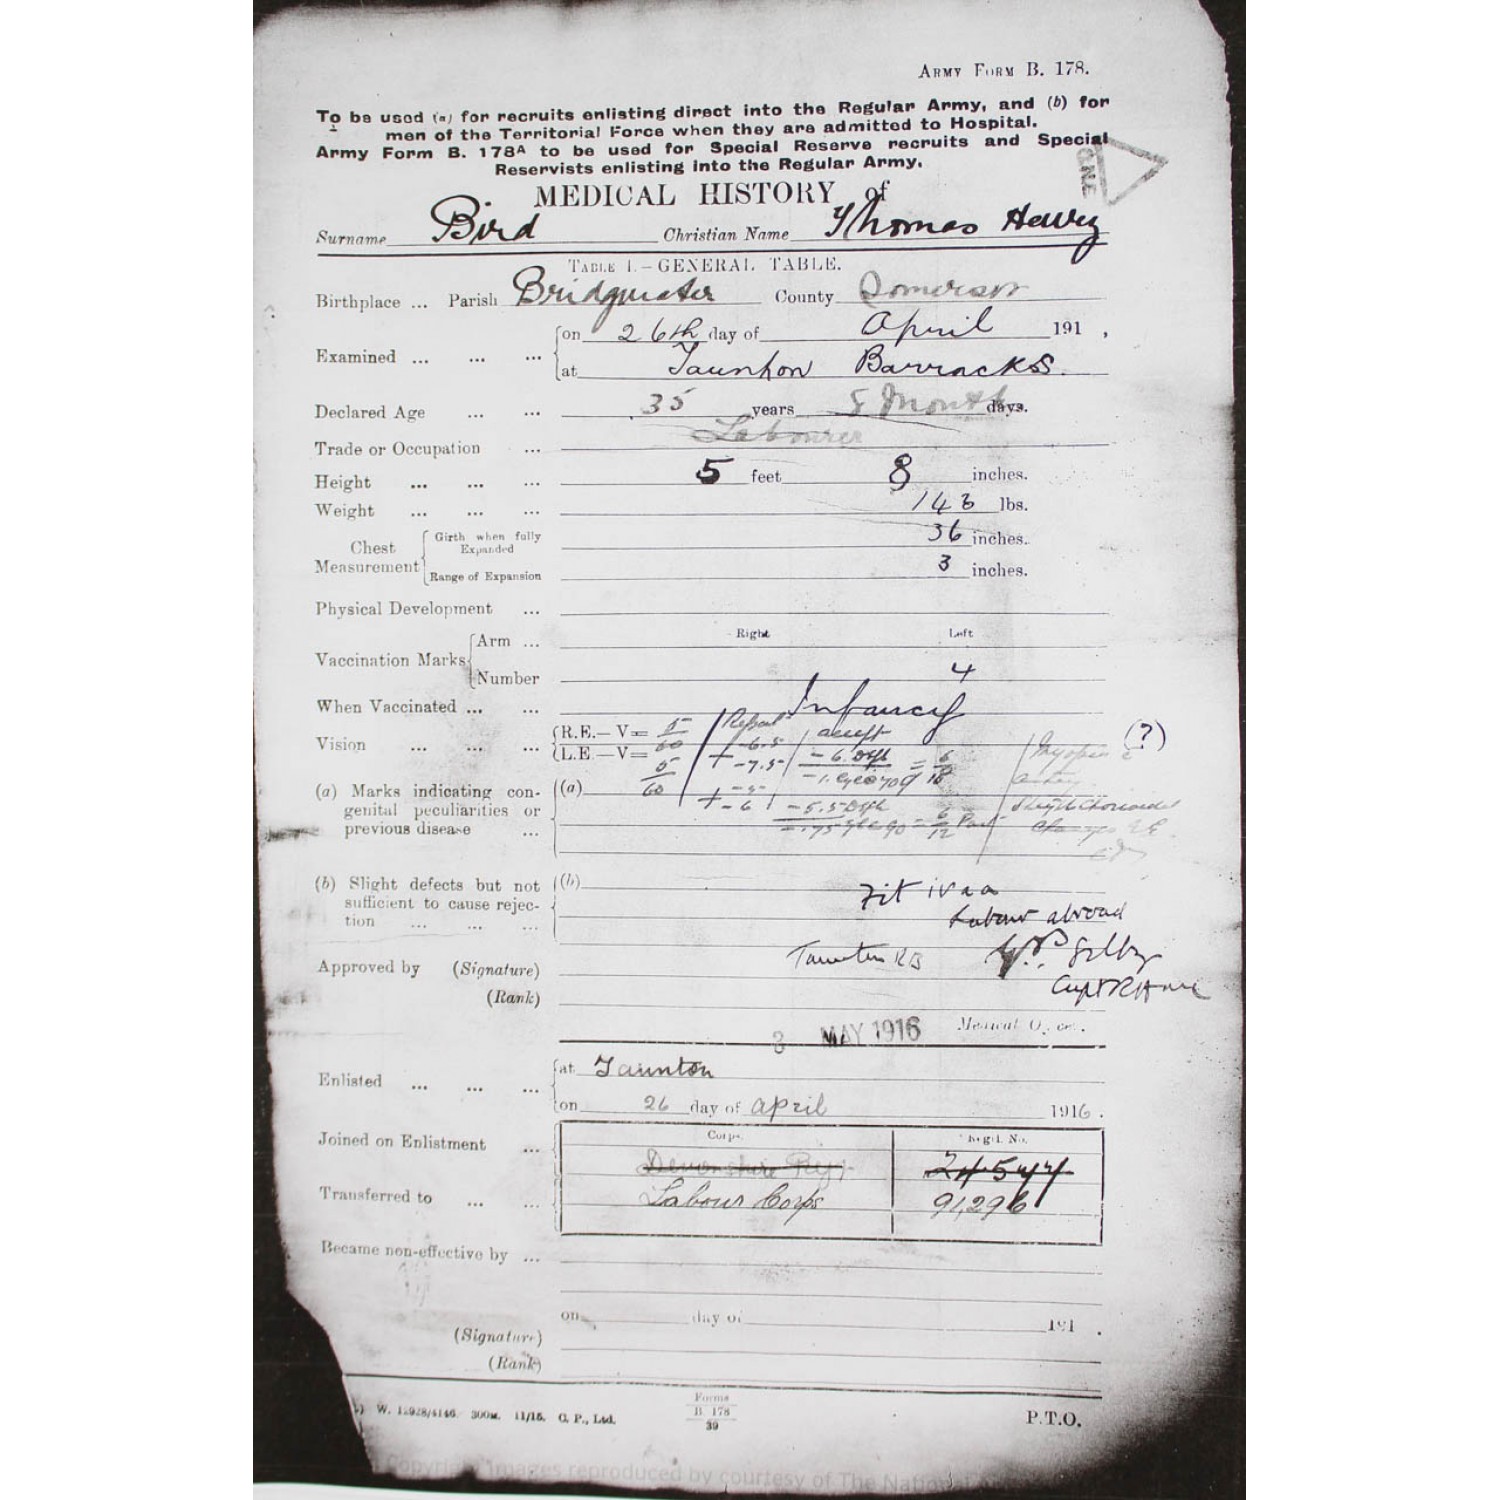 ARMY FORM B. 178.
To be used (a) for recruits enlisting direct into the Regular Army, and (b) for
men of the Territorial Force when they are admitted to Hospital.
Army Form B. 178A to be used for Special Reserve recruits and Special
Reservists enlisting into the Regular Army.
MEDICAL HISTORY of
Surname Bird Christian Name Thomas Henry
TABLE 1.—GENERAL TABLE.
Birthplace ... Parish Bridgwater County Somerset
Examined ... ... ... on 26th day of April 191 ,
at Taunton Barracks.
Declared Age ... ... 35 years 8 Months days.
Trade or Occupation ... Labourer
Height ... ... ... 5 feet 8 inches.
Weight ... ... ... 143 lbs.
Chest Measurement Girth when fully Expanded 36 inches.
Range of Expansion 3 inches.
Physical Development ...
Right Left
Vaccination Marks Arm ...
Number 4
When Vaccinated ... ... Infancy
Vision ... ... ... R.E.—V= 5/60
L.E.—V= 5/60
-6.5
-7.5
- 6. Dsph = 6/18
- 5.5 Dsph
6/12 Part
Myopia (?)
(a) Marks indicating con-
genital peculiarities or
previous disease ...
(a)
Slight Choroidal
Changes
(b) Slight defects but not
sufficient to cause rejec-
tion ... ... ...
(b)
Fit
Labour abroad
Taunton
Approved by (Signature)
(Rank) Capt
3 MAY 1916 Medical Officer.
Enlisted ... ... ... at Taunton
on 26 day of April 1916.
Corps. Regtl. No.
Joined on Enlistment ... Devonshire Regt 24544
Transferred to ... ... Labour Corps 91296
Became non-effective by ...
on day of 191 .
(Signature)
(Rank)
W. 12928/4146. 300M. 11/15. G. P., Ltd.
Forms
B. 178
39
P.T.O.
Copyright images reproduced by courtesy of The National